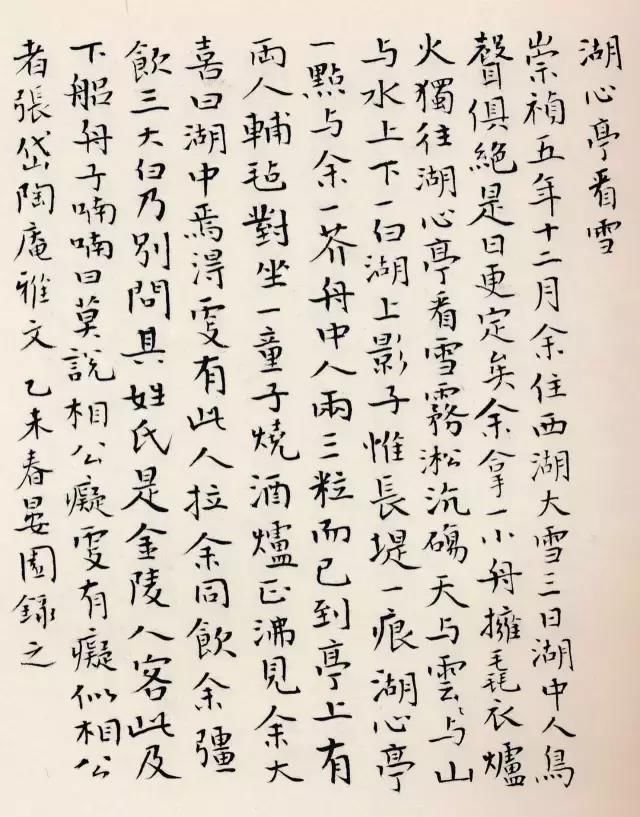 湖心亭看雪
崇禎五年十二月余住西湖大雪三日湖中人鳥
聲俱絕是日更定矣余拿一小舟擁毳衣爐
火獨往湖心亭看雪霧淞沆碭天与雲、与山
与水上下一白湖上影子惟長堤一痕湖心亭
一點与余一芥舟中人兩三粒而已到亭上有
兩人輔毡對坐一童子燒酒爐正沸見余大
喜曰湖中焉得更有此人拉余同飲余彊
飲三大白乃別問其姓氏是金陵人客此及
下船舟子喃喃曰莫說相公癡更有癡似相公
者張岱陶庵雅文 乙未春晏園錄之